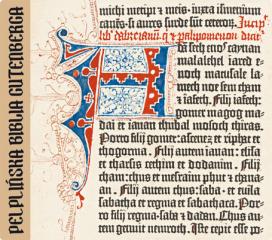 PELPLIŃSKA BIBLIA GUTENBERGA
michi metipi & meis · iuxta ismenium
canēs · si aures surde sūt ceteroꝝ. Incip
dā seth enos caynan
malalehel iared e-
noch matusale la-
mech noe sem cham
& iafeth. Filij iafeth:
gomer magog ma-
dai et iauan thubal mosoch thiras.
Porro filij gomer: asceneꝫ et riphat et
thogorma. Filij autem iauan: elisa
et tharsis cethim et dodanim. Filij
cham: chus et mesraim phut & chanaan.
Filij autem chus: saba · et euila
sabatha et regma et sabathaca. Por-
ro filij regma: saba & dadan. Chus au-
tem genuit nemroth. Iste cepit esse po-